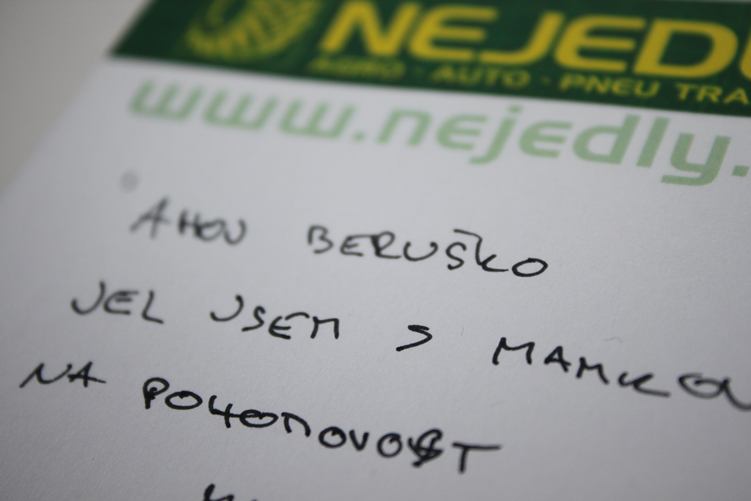 NEJED
AGRO · AUTO · PNEU TRA
www.nejedly.
AHOJ BERUŠKO
JEL JSEM S MAMKOU
NA POHOTOVOST